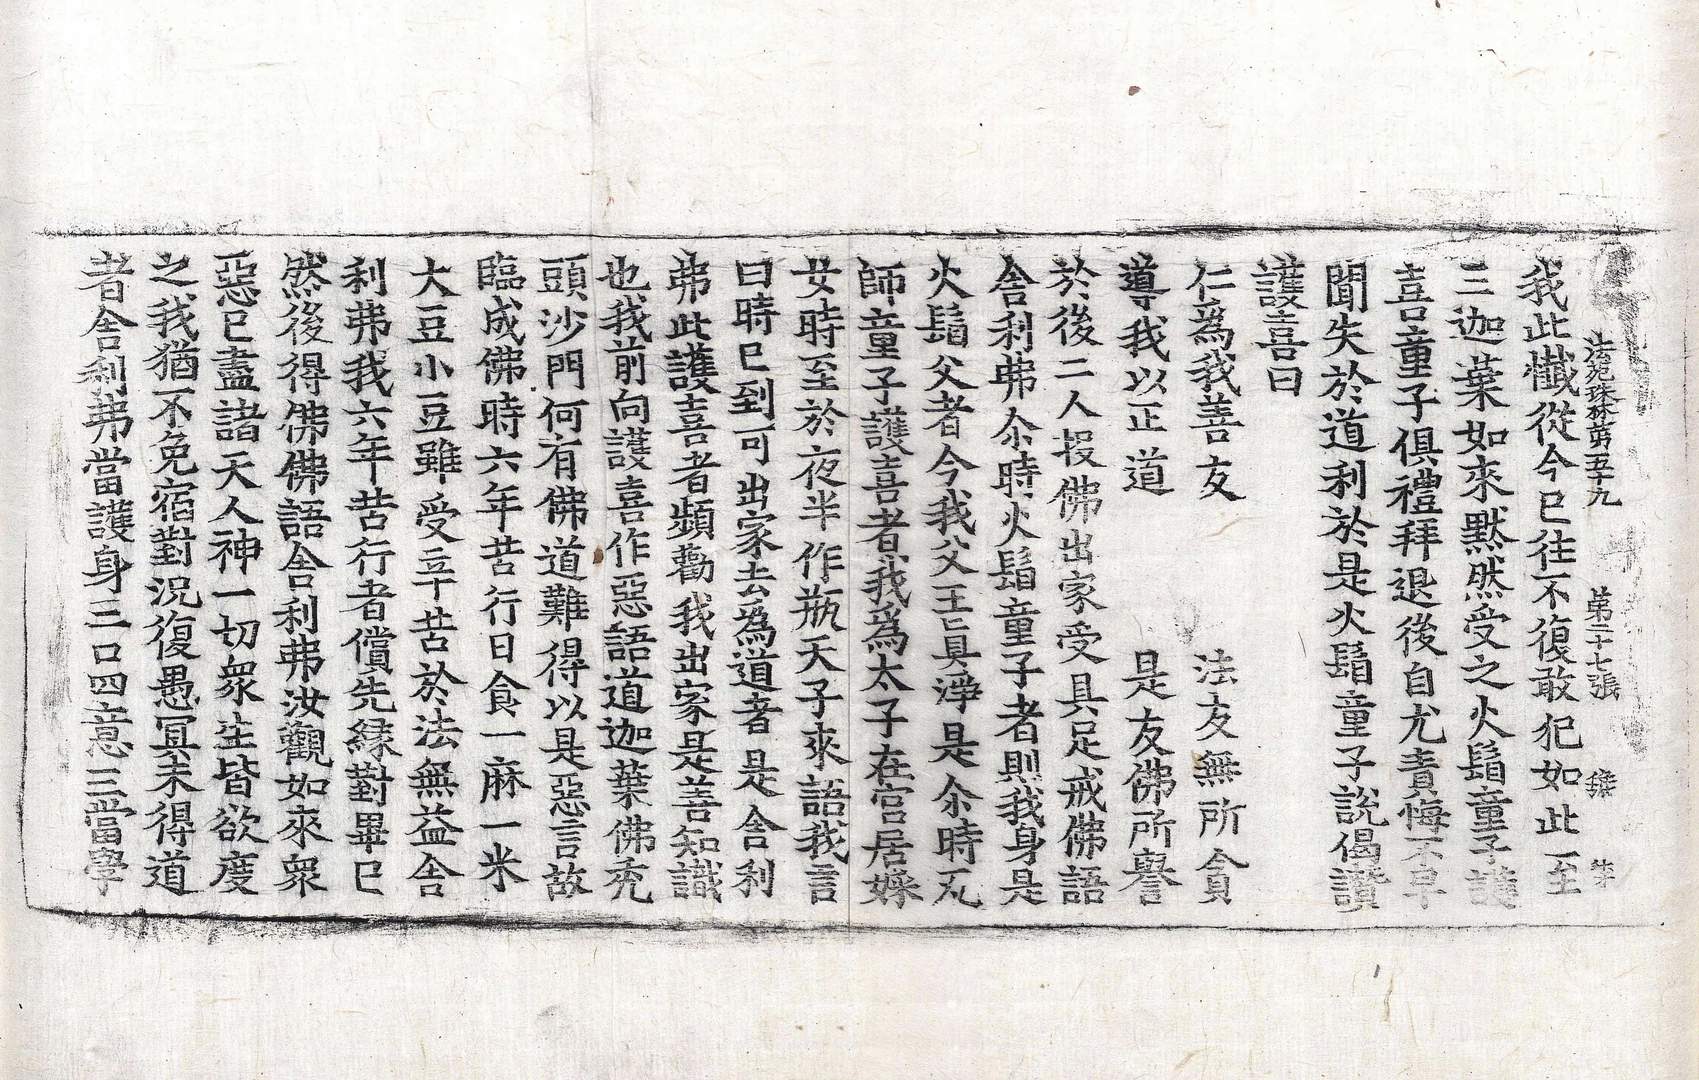 法苑珠林第五十九 第二十七張
我此懺從今已往不復敢犯如此一至
三迦葉如來默然受之火鬘童子護
喜童子俱禮拜退後自尤責悔不早
聞失於道利於是火鬘童子說偈讚
護喜曰
仁為我善友 法友無所貪
導我以正道 是友佛所譽
於後二人投佛出家受具足戒佛語
舍利弗尒時火鬘童子者則我身是
火鬘父者今我父王真淨是尒時瓦
師童子護喜者我為太子在宮居婇
女時至於夜半作瓶天子來語我言
曰時已到可出家去為道者是舍利
弗此護喜者頻勸我出家是善知識
也我前向護喜作惡語道迦葉佛禿
頭沙門何有佛道難得以是惡言故
臨成佛時六年苦行日食一麻一米
大豆小豆雖受辛苦於法無益舍
利弗我六年苦行者償先緣對畢已
然後得佛佛語舍利弗汝觀如來眾
惡已盡諸天人神一切眾生皆欲度
之我猶不免宿對況復愚冥未得道
者舍利弗當護身三口四意三當學